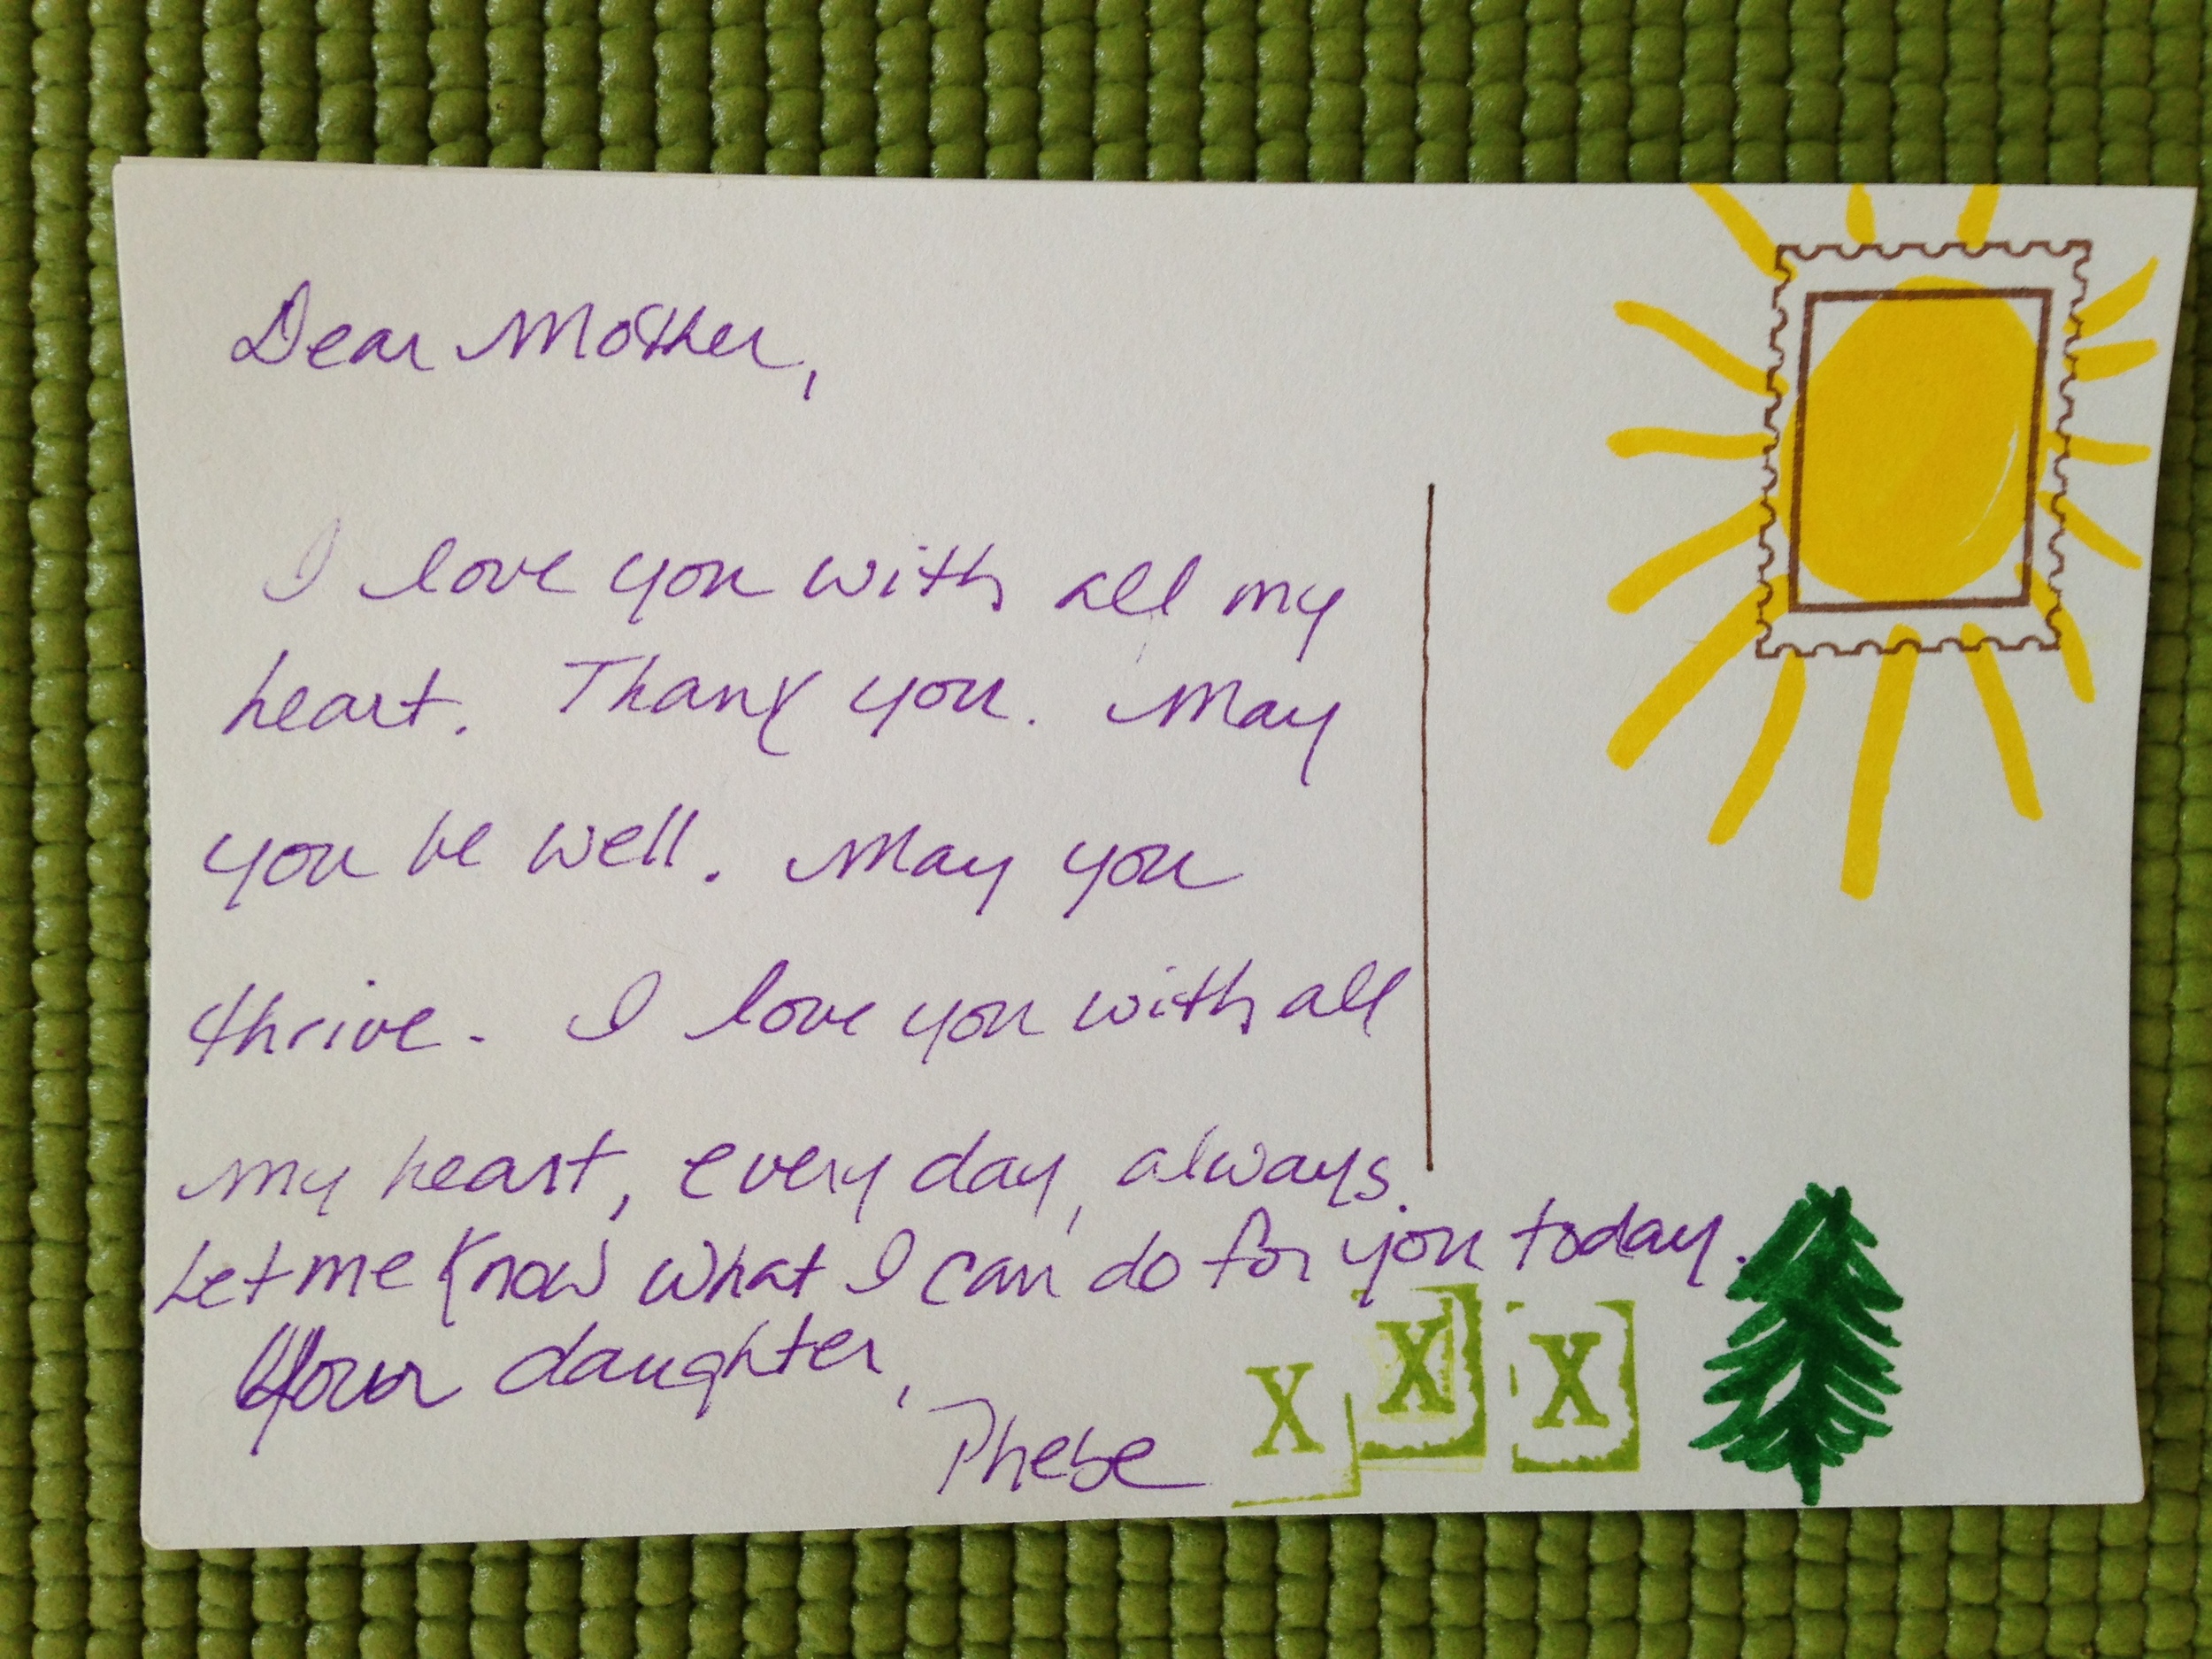 Dear Mother,
I love you with all my
heart. Thank you. May
you be well. May you
thrive. I love you with all
my heart, every day, always.
Let me know what I can do for you today.
Your daughter,
Phebe X X X